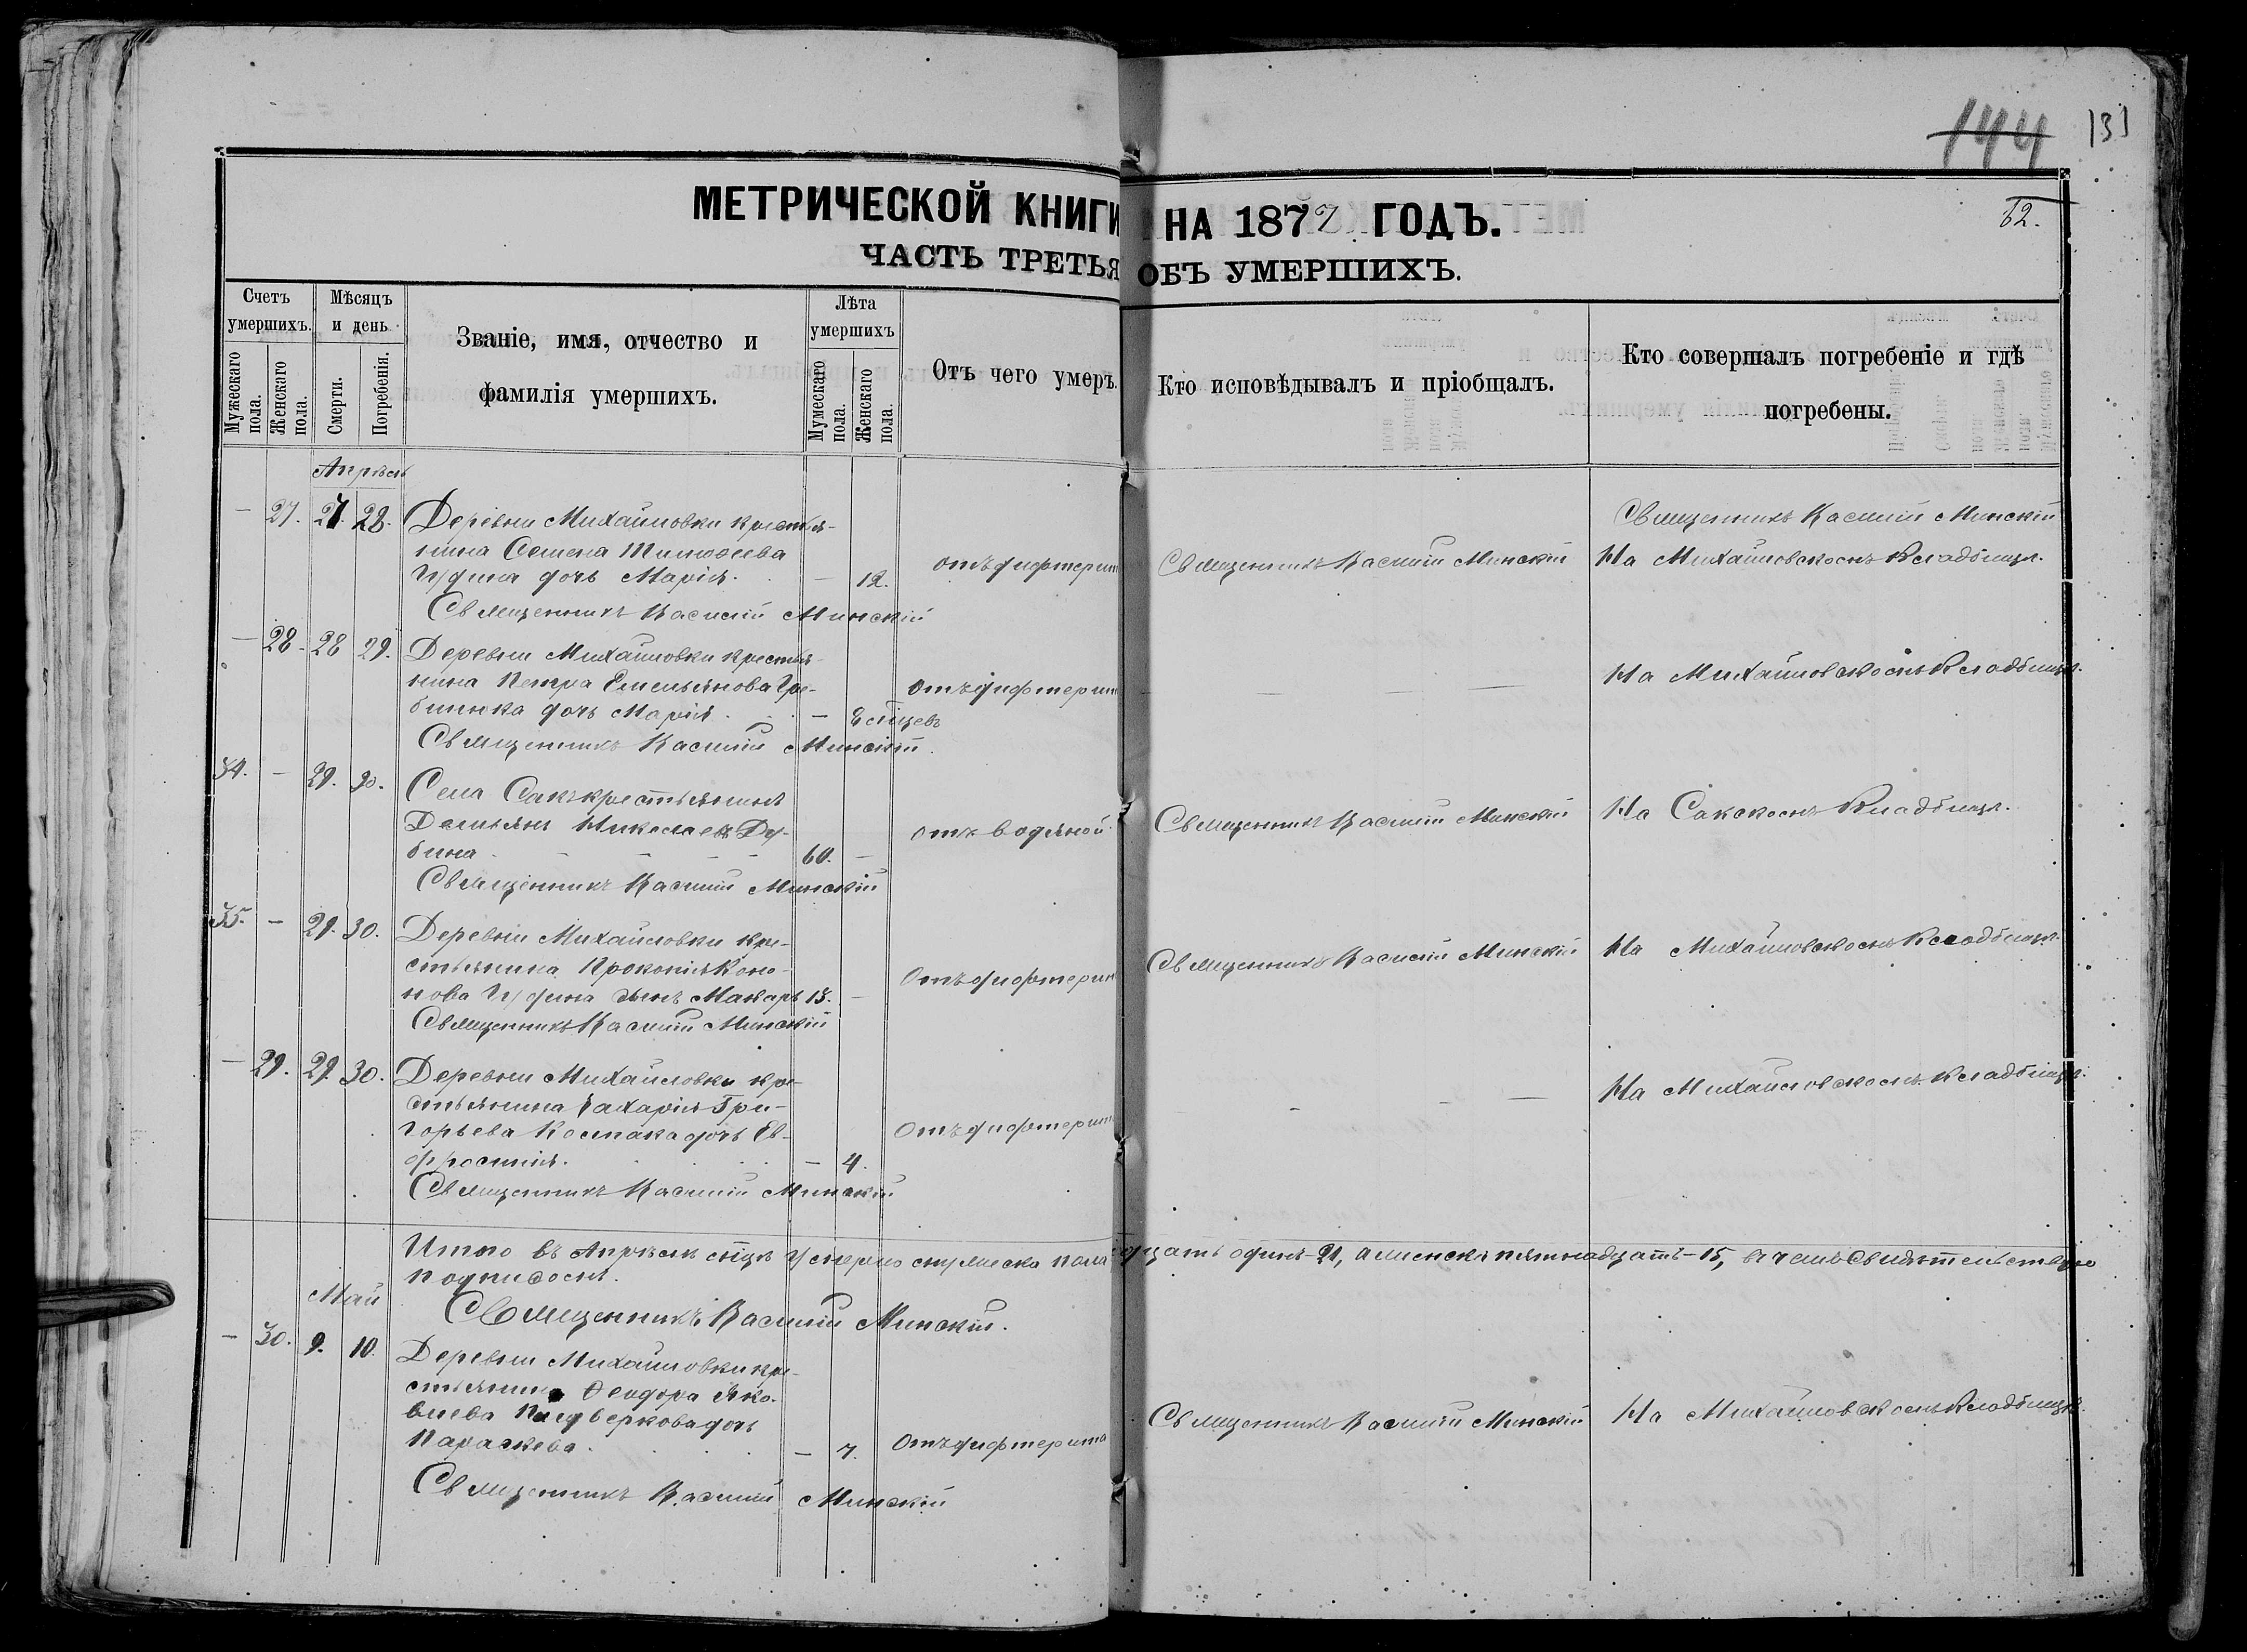 144 131
МЕТРИЧЕСКОЙ КНИГИ НА 1877 ГОДЪ.
62.
ЧАСТЬ ТРЕТЬЯ ОБЪ УМЕРШИХЪ.
Счетъ умершихъ.
Мужескаго пола.
Женскаго пола.
Мѣсяцъ и день
Смерти.
Погребенія.
Званіе, имя, отчество и
фамилія умершихъ.
Лѣта умершихъ
Мужескаго пола.
Женскаго пола.
Отъ чего умеръ.
Кто исповѣдывалъ и пріобщалъ.
Кто совершалъ погребеніе и гдѣ
погребены.
Апрѣль
— 27. 27. 28. Деревни Михайловки крестья-
нина Семена Тимофеева
дочь Марія. — 12.
отъ дифтерит
Священникъ Василій Минскій
Священникъ Василій Минскій
На Михайловскомъ Кладбищѣ.
Священникъ Василій Минскій
— 28. 28 29. Деревни Михайловки крестья-
нина Петра Емельянова Гре-
бинюка дочь Марія. —
отъ дифтерит
— —
На Михайловскомъ Кладбищѣ.
Священникъ Василій Минскій.
34. — 29. 30. Села Сакъ крестьянинъ
Демьянъ Николаевъ Ду-
бина 60. —
отъ водяной
Священникъ Василій Минскій
На Сакскомъ Кладбищѣ.
Священникъ Василій Минскій
35. — 29. 30. Деревни Михайловки кре-
стьянина Прокопія Коно-
нова сынъ Макаръ 13. —
Отъ дифтерит
Священникъ Василій Минскій
На Михайловскомъ Кладбищѣ.
Священникъ Василій Минскій
— 29. 29. 30. Деревни Михайловки кре-
стьянина Захарія Гри-
горьева Костака дочь Ев-
фросинія. — 4.
Отъ дифтерит
— —
На Михайловскомъ Кладбищѣ.
Священникъ Василій Минскій
Итого въ Апрѣлѣ умерло мужеска пола дцать одинъ — 21, а женска пятнадцать — 15, въ чемъ свидѣтельствую
подписомъ.
Священникъ Василій Минскій.
Май
— 30. 9. 10. Деревни Михайловки кре-
стьянина Ѳеодора Яко-
влева дочь
Параскева. — 7.
Отъ дифтерита
Священникъ Василій Минскій
На Михайловскомъ Кладбищѣ.
Священникъ Василій Минскій